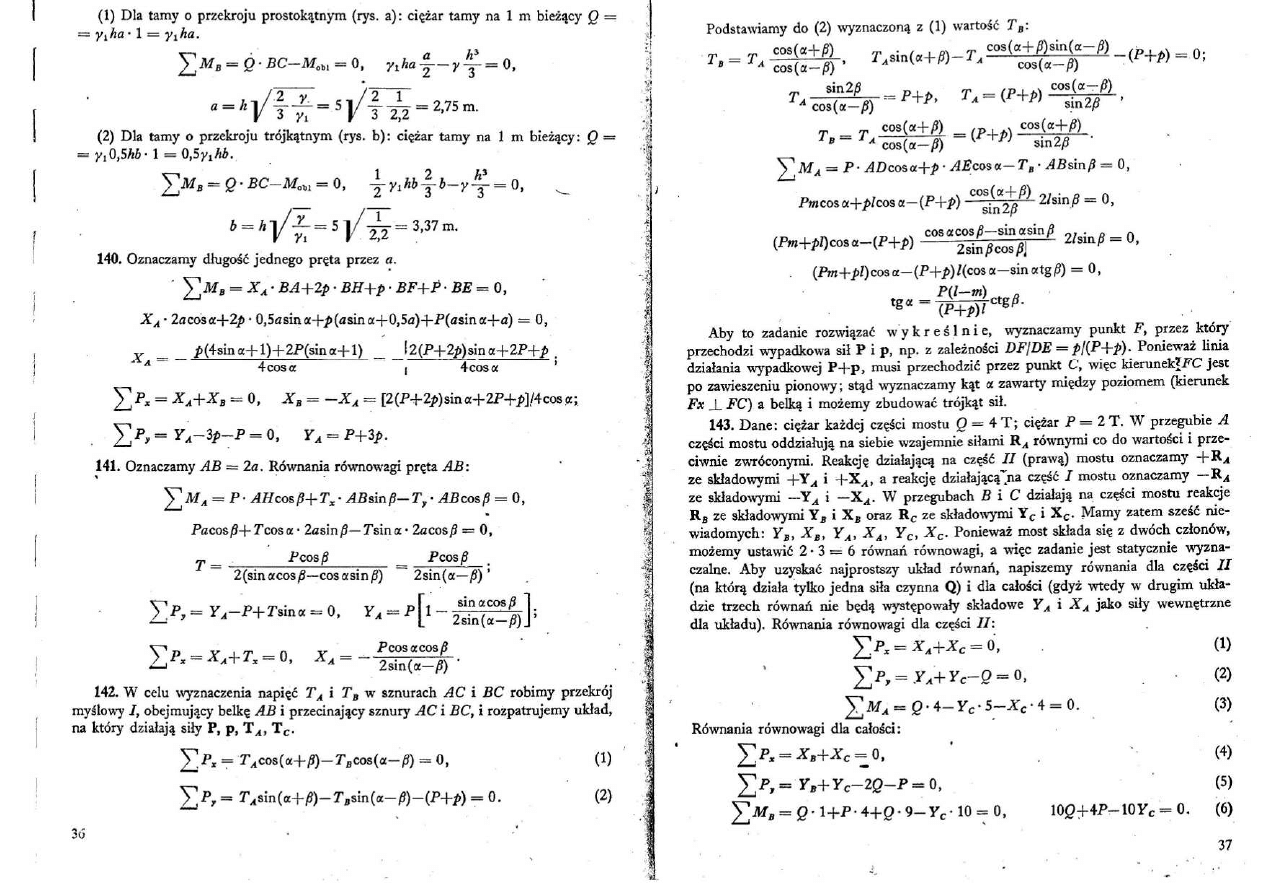 (1) Dla tamy o przekroju prostokątnym (rys. a): ciężar tamy na 1 m bieżący Q =
= γ₁ha · 1 = γ₁ha.
∑M_B = Q · BC—M_obl = 0, γ₁ha a/2 — γ h³/3 = 0,
a = h √(2/3 γ/γ₁) = 5 √(2/3 1/2,2) = 2,75 m.
(2) Dla tamy o przekroju trójkątnym (rys. b): ciężar tamy na 1 m bieżący: Q =
= γ₁0,5hb · 1 = 0,5γ₁hb.
∑M_B = Q · BC—M_obl = 0, 1/2 γ₁hb 2/3 b—γ h³/3 = 0,
b = h √(γ/γ₁) = 5 √(1/2,2) = 3,37 m.
140. Oznaczamy długość jednego pręta przez a.
∑M_B = X_A · BA+2p · BH+p · BF+P · BE = 0,
X_A · 2acosα+2p · 0,5asinα+p(asinα+0,5a)+P(asinα+a) = 0,
X_A = — (p(4sinα+1)+2P(sinα+1))/(4cosα) = — (2(P+2p)sinα+2P+p)/(4cosα) ;
∑P_x = X_A+X_B = 0, X_B = —X_A = [2(P+2p)sinα+2P+p]/4cosα;
∑P_y = Y_A—3p—P = 0, Y_A = P+3p.
141. Oznaczamy AB = 2a. Równania równowagi pręta AB:
∑M_A = P · AHcosβ+T_x · ABsinβ—T_y · ABcosβ = 0,
Pacosβ+Tcosα · 2asinβ—Tsinα · 2acosβ = 0,
T = Pcosβ/(2(sinαcosβ—cosαsinβ)) = Pcosβ/(2sin(α—β)) ;
∑P_y = Y_A—P+Tsinα = 0, Y_A = P[1 — sinαcosβ/(2sin(α—β))];
∑P_x = X_A+T_x = 0, X_A = — Pcosαcosβ/(2sin(α—β)) .
142. W celu wyznaczenia napięć T_A i T_B w sznurach AC i BC robimy przekrój
myślowy I, obejmujący belkę AB i przecinający sznury AC i BC, i rozpatrujemy układ,
na który działają siły P, p, T_A, T_C.
∑P_x = T_Acos(α+β)—T_Bcos(α—β) = 0, (1)
∑P_y = T_Asin(α+β)—T_Bsin(α—β)—(P+p) = 0. (2)
36
Podstawiamy do (2) wyznaczoną z (1) wartość T_B:
T_B = T_A cos(α+β)/cos(α—β) , T_Asin(α+β)—T_A cos(α+β)sin(α—β)/cos(α—β) —(P+p) = 0;
T_A sin2β/cos(α—β) = P+p, T_A = (P+p) cos(α—β)/sin2β ,
T_B = T_A cos(α+β)/cos(α—β) = (P+p) cos(α+β)/sin2β .
∑M_A = P · ADcosα+p · AEcosα—T_B · ABsinβ = 0,
Pmcosα+plcosα—(P+p) cos(α+β)/sin2β 2lsinβ = 0,
(Pm+pl)cosα—(P+p) (cosαcosβ—sinαsinβ)/(2sinβcosβ) 2lsinβ = 0,
(Pm+pl)cosα—(P+p)l(cosα—sinαtgβ) = 0,
tgα = P(l—m)/((P+p)l) ctgβ.
Aby to zadanie rozwiązać wykreślnie, wyznaczamy punkt F, przez który
przechodzi wypadkowa sił P i p, np. z zależności DF/DE = p/(P+p). Ponieważ linia
działania wypadkowej P+p, musi przechodzić przez punkt C, więc kierunek FC jest
po zawieszeniu pionowy; stąd wyznaczamy kąt α zawarty między poziomem (kierunek
Fx ⊥ FC) a belką i możemy zbudować trójkąt sił.
143. Dane: ciężar każdej części mostu Q = 4 T; ciężar P = 2 T. W przegubie A
części mostu oddziałują na siebie wzajemnie siłami R_A równymi co do wartości i prze-
ciwnie zwróconymi. Reakcję działającą na część II (prawą) mostu oznaczamy +R_A
ze składowymi +Y_A i +X_A, a reakcję działającą na część I mostu oznaczamy —R_A
ze składowymi —Y_A i —X_A. W przegubach B i C działają na części mostu reakcje
R_B ze składowymi Y_B i X_B oraz R_C ze składowymi Y_C i X_C. Mamy zatem sześć nie-
wiadomych: Y_B, X_B, Y_A, X_A, Y_C, X_C. Ponieważ most składa się z dwóch członów,
możemy ustawić 2 · 3 = 6 równań równowagi, a więc zadanie jest statycznie wyzna-
czalne. Aby uzyskać najprostszy układ równań, napiszemy równania dla części II
(na którą działa tylko jedna siła czynna Q) i dla całości (gdyż wtedy w drugim ukła-
dzie trzech równań nie będą występowały składowe Y_A i X_A jako siły wewnętrzne
dla układu). Równania równowagi dla części II:
∑P_x = X_A+X_C = 0, (1)
∑P_y = Y_A+Y_C—Q = 0, (2)
∑M_A = Q · 4—Y_C · 5—X_C · 4 = 0. (3)
Równania równowagi dla całości:
∑P_x = X_B+X_C = 0, (4)
∑P_y = Y_B+Y_C—2Q—P = 0, (5)
∑M_B = Q · 1+P · 4+Q · 9—Y_C · 10 = 0, 10Q+4P—10Y_C = 0. (6)
37